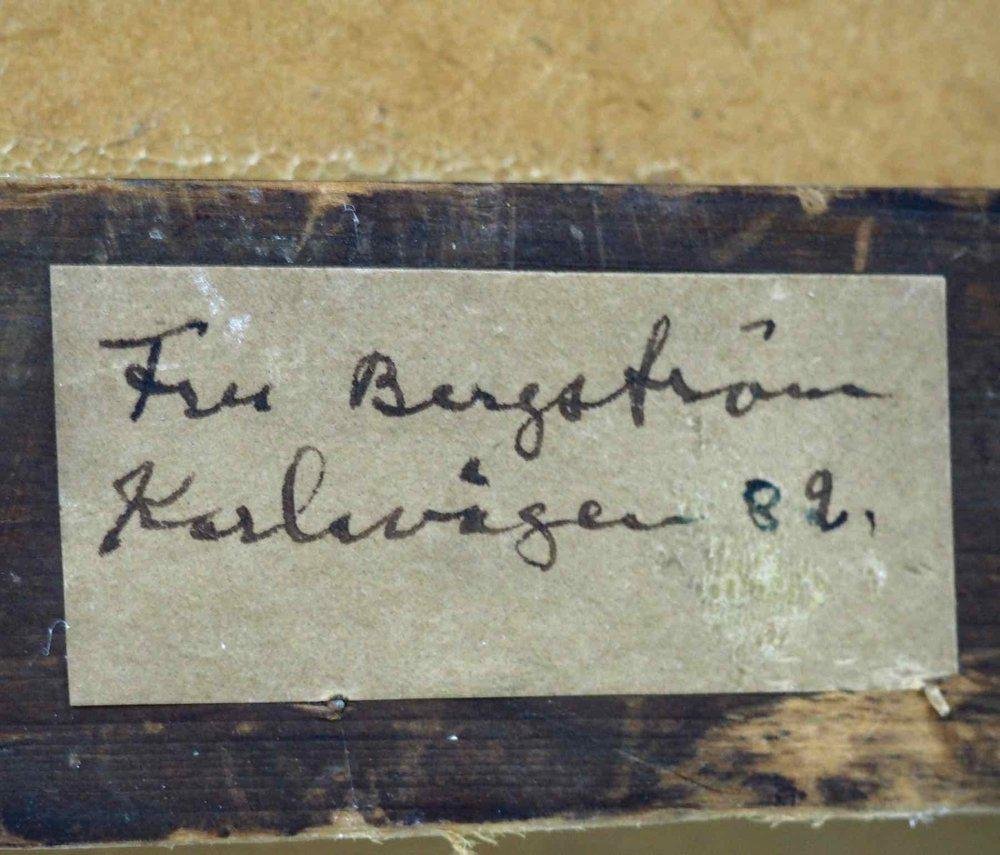 Fru Bergström
Karlavägen 82.